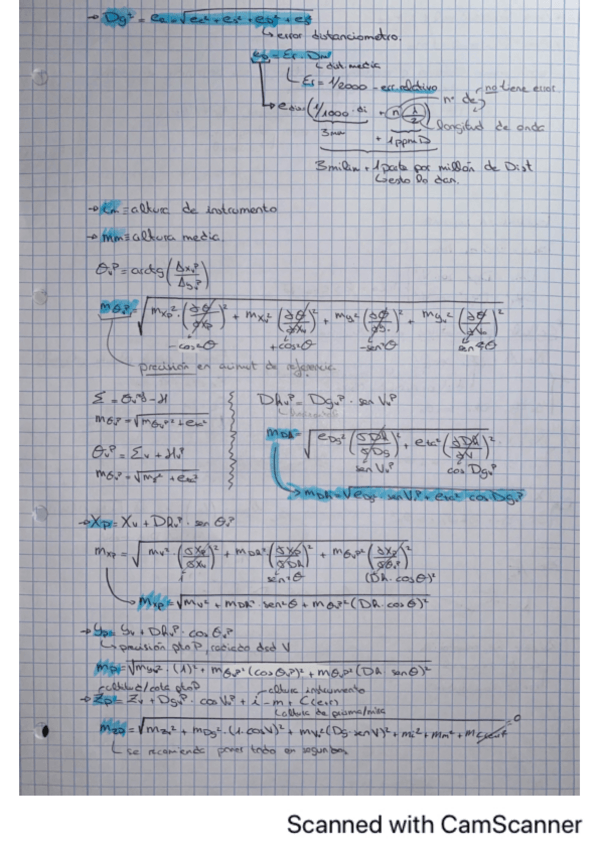 → Dg² = e_D = √(e_e² + e_s² + e_D² + e_p²)
↳ error distanciometro.
e_D = E_r · D_m
↳ dist. media
↳ E_r = 1/2000 - err. relativo
no tiene error.
nº de
↳ e_Dis (1/1000 · di + n (λ/2)
longitud de onda
3mm + 1ppm D
3milim + 1 parte por millón de Dist
↳ esto lo dan.
→ im = altura de instrumento
→ mm = altura media.
θᵥᴾ = arctg (Δxᵥᴾ / Δyᵥᴾ)
mθᵥᴾ = √(m_xp² · (∂θ/∂Xp)² + m_xv² (∂θ/∂Xv)² + m_yp² (∂θ/∂yp)² + m_yv² (∂θ/∂yv)²)
-cos²θ +cos²θ -sen²θ sen²θ
precisión en acimut de referencia.
Σ = θᵥᴾ - H
mθᵥᴾ = √(mθᵥᴾ² + e_tc²)
θᵥᴾ = Σᵥ + Hᵥᴾ
mθᵥᴾ = √(m_Σ² + e_tc²)
DRᵥᴾ = Dgᵥᴾ · sen Vᵥᴾ
m_DR = √(e_Dg² (∂DR/∂Dg)² + e_tc² (∂DR/∂V)²)
sen Vᵥᴾ cos Dgᵥᴾ
→ m_DR = √(e_Dg · sen Vᵥᴾ + e_tc² · cos Dgᵥᴾ
→ Xp = Xv + DRᵥᴾ · sen θᵥᴾ
m_xp = √(m_v² · (∂Xp/∂Xv)² + m_DR² (∂Xp/∂DR)² + mθᵥᴾ² (∂Xp/∂θᵥᴾ)²)
1 sen²θ (DR · cosθ)²
m_xp = √(m_v² + m_DR² · sen²θ + mθᵥᴾ² (DR · cosθ)²
→ yp = yv + DRᵥᴾ · cos θᵥᴾ
↳ precisión pto P, radiado dsd V
m_p = √(m_yv² · (1)² + mθᵥᴾ² (cosθᵥᴾ)² + mθᵥᴾ² (DR · senθ)²
altitud/cota pto P
altura instrumento
→ Zp = Zv + Dgᵥᴾ · cos Vᵥᴾ + i - m + C(e+r)
↳ altura de prisma/mira
m_zp = √(m_zv² + m_Dg² · (1 · cosV)² + m_V² (Dg · senV)² + m_i² + m_m² + m_C(e+r)² = 0
↳ se recomienda poner todo en segundos
Scanned with CamScanner